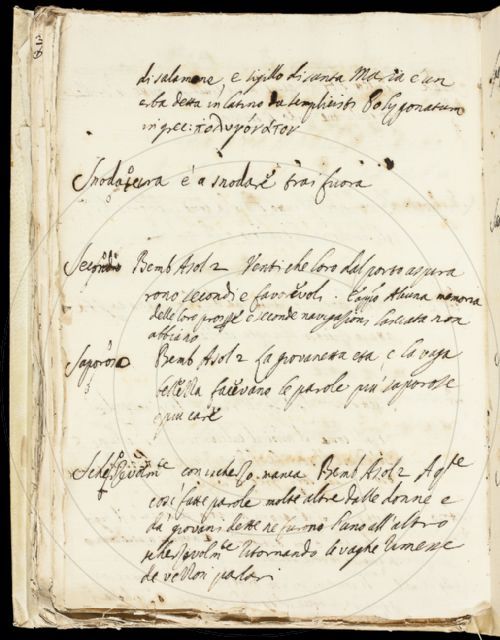 di salamone, e sigillo di santa Maria e un
erba detta in latino da semplicisti Polygonatum
in grec: πολυγόνατον
Snodatura è a snodare trai fuora
Secondo Bemb Asol 2 Venti che loro dal porto aspira
rono secondi e favorevoli. Alcuna memoria
delle loro prospe e seconde navigazioni lasciata non
abbiano
Saporoso Bemb Asol 2 La giovanetta età, e la vaga
bellezza facevano le parole più saporose
e più care
con ischerzo manca Bemb Asol 2 A qte
così fatte parole molte altre dalle donne e
da giovani dette ne furono l'uno all'altro
scherzevolmte ritornando le vaghe rimesse
de vezzosi parlari